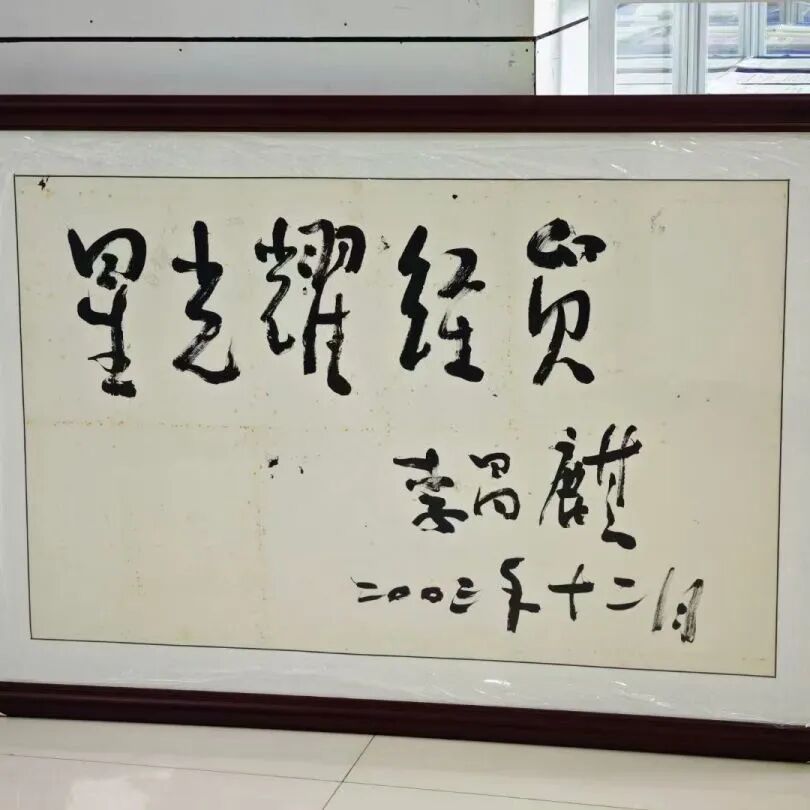 星光耀经贸
李昌麒
二〇〇三年十二月